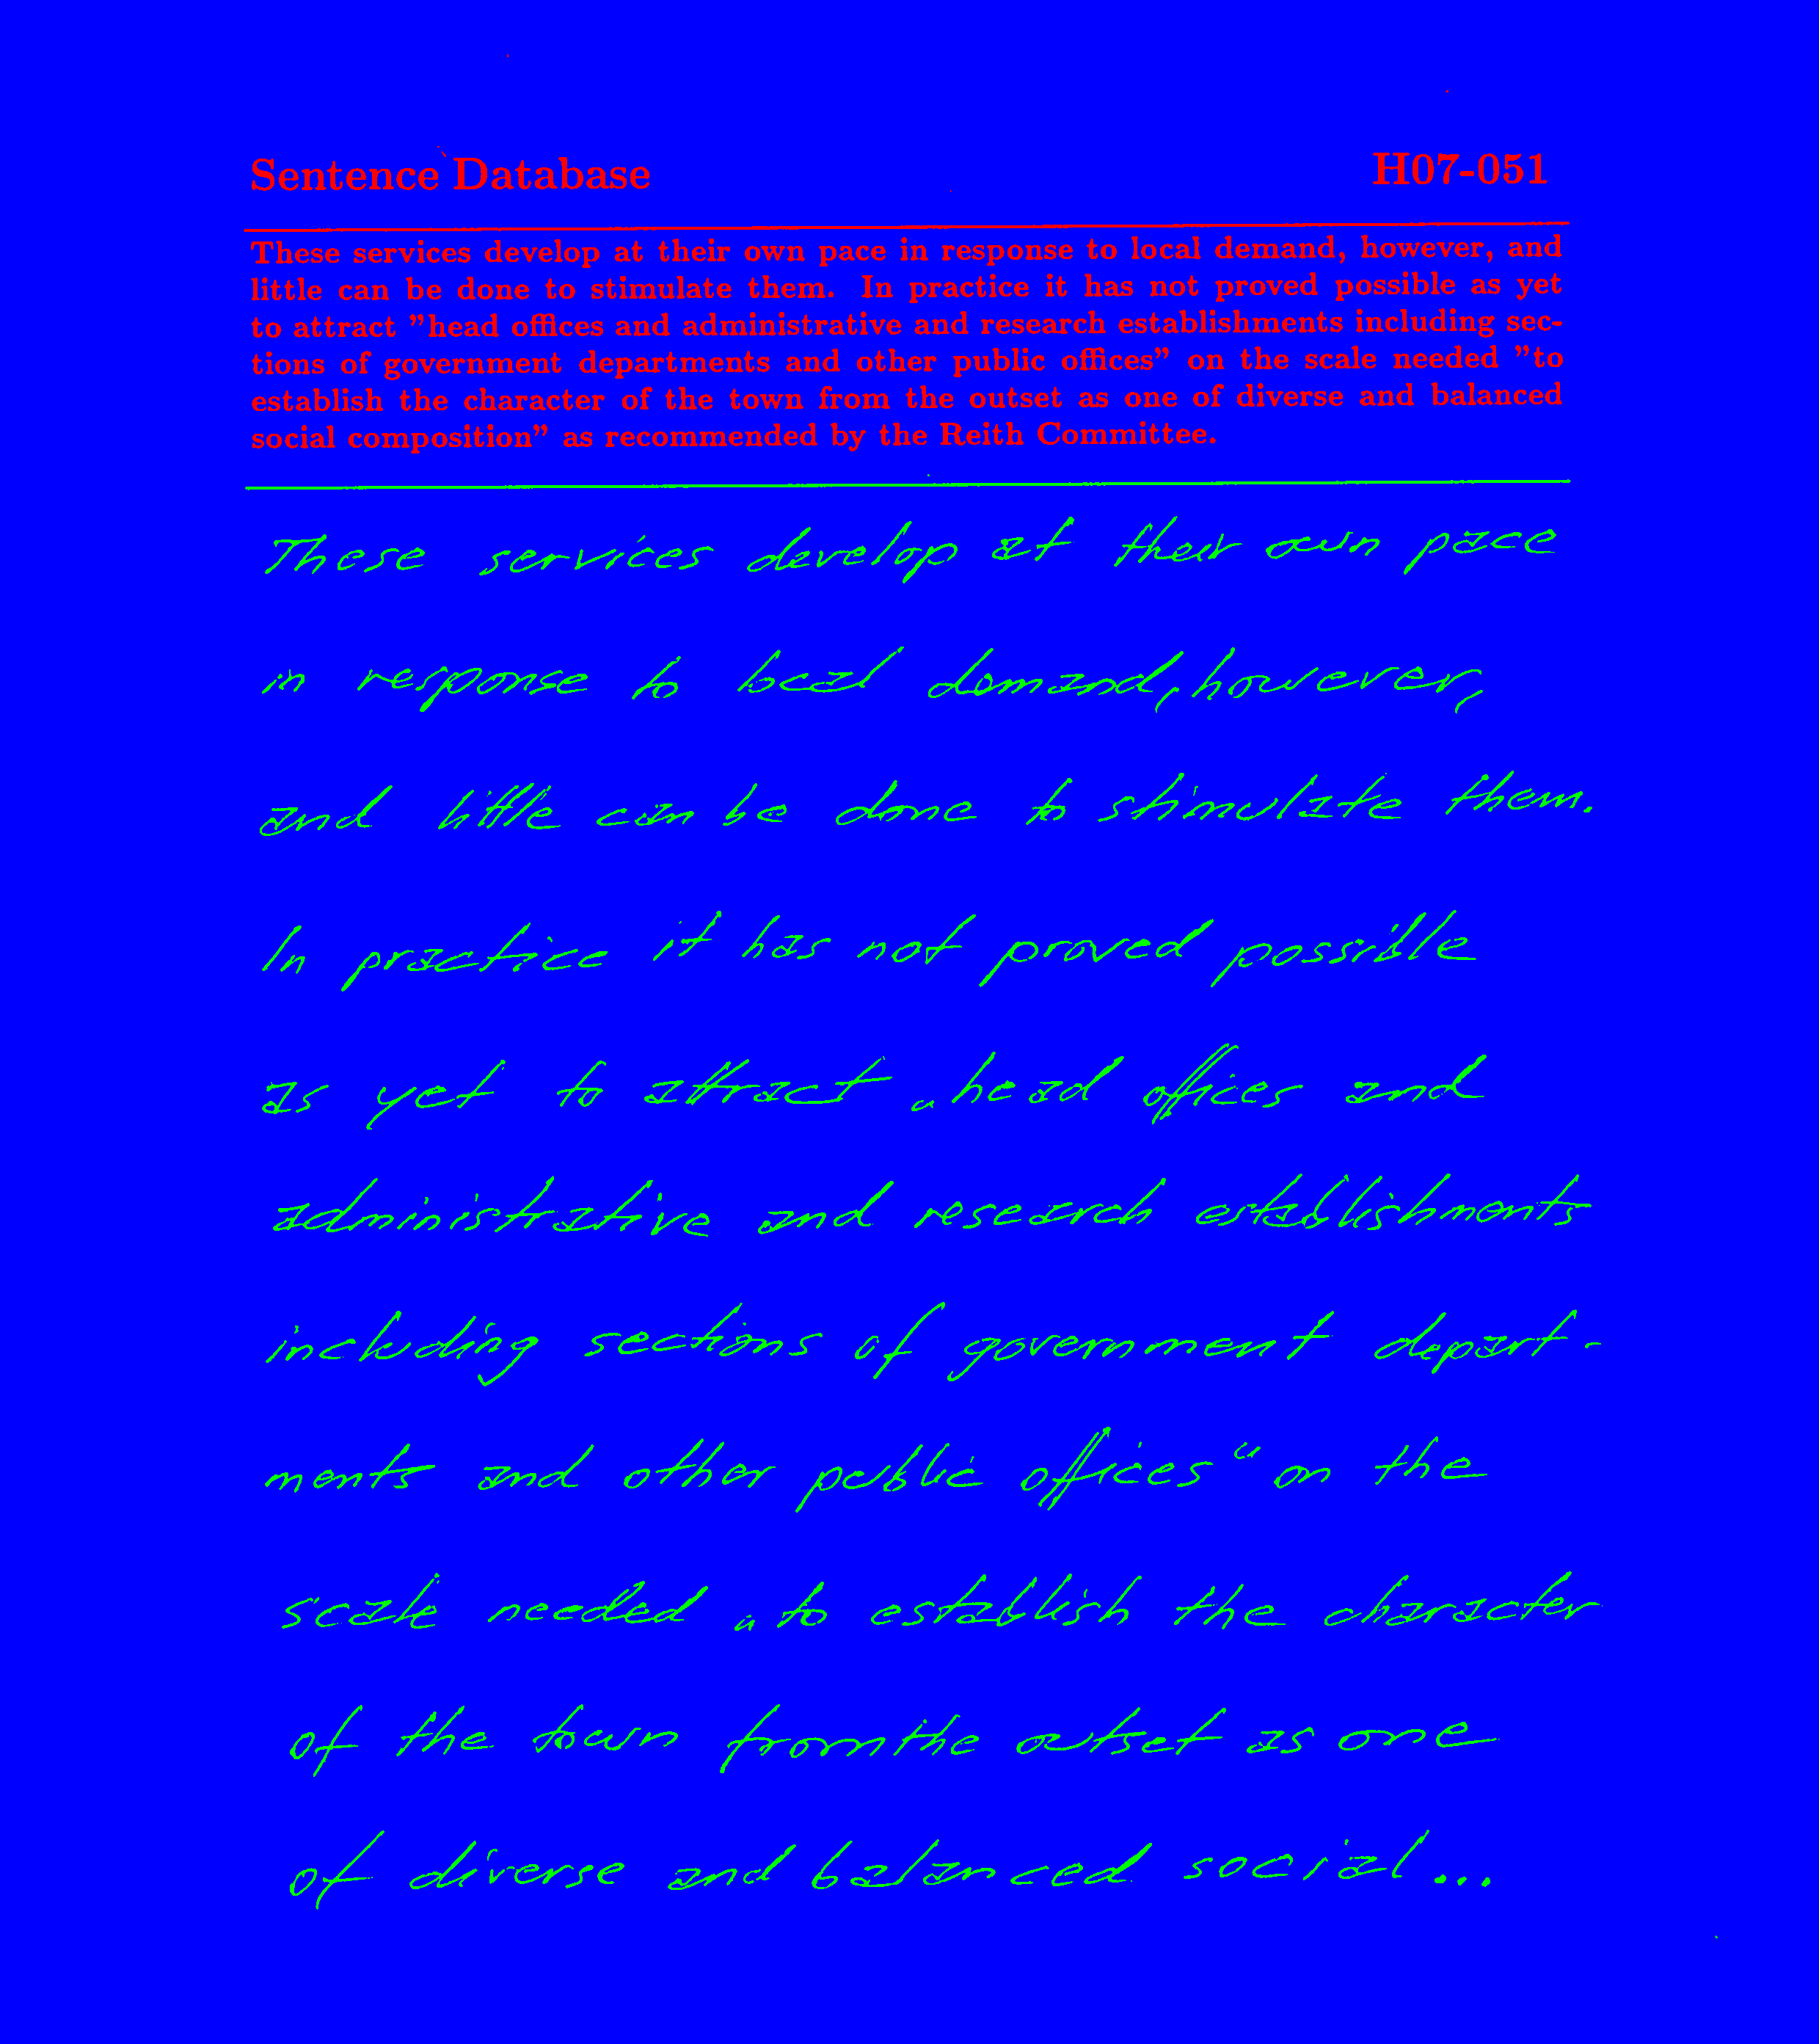 Sentence Database H07-051
These services develop at their own pace in response to local demand, however, and
little can be done to stimulate them. In practice it has not proved possible as yet
to attract "head offices and administrative and research establishments including sec-
tions of government departments and other public offices" on the scale needed "to
establish the character of the town from the outset as one of diverse and balanced
social composition" as recommended by the Reith Committee.
These services develop at their own pace
in response to local demand, however,
and little can be done to stimulate them.
In practice it has not proved possible
as yet to attract „head offices and
administrative and research establishments
including sections of government depart-
ments and other public offices“ on the
scale needed „to establish the character
of the town from the outset as one
of diverse and balanced social...